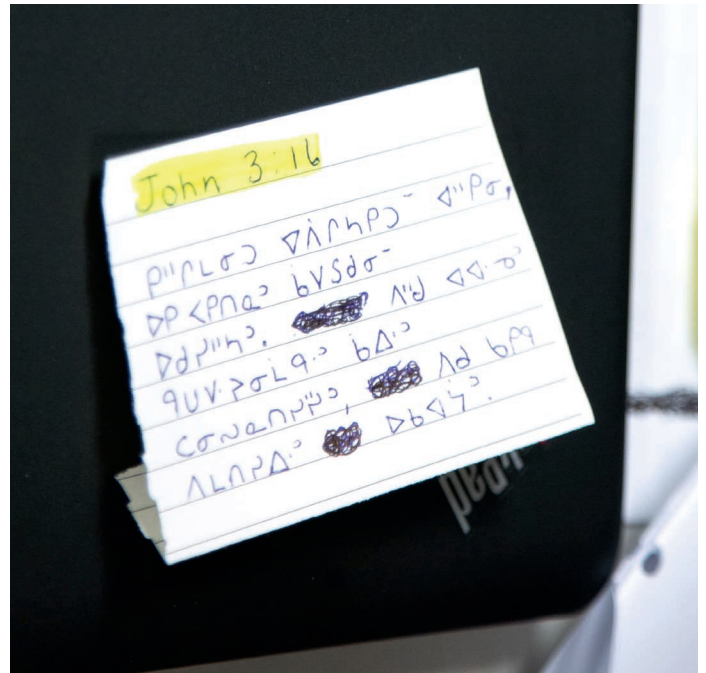 John 3:16
ᑭᐦᒋᒪᓂᑐ ᐁᐲᒋᓴᑭᑐᐨ ᐊᐦᑭᓂ,
ᐅᑭ ᐸᑭᑎᓇᐣ ᑳᐯᔑᑯᓂᐨ
ᐅᑯᓯᐦᓴᐣ. ᐱᐦᑯ ᐊᐊᐧᓀᐣ
ᑫᑌᐯᐧᔦᓂᒫᑫᐧᐣ ᑳᐃᐧᐣ
ᑕᓂᔕᓇᑎᓯᐦᓯᐣ, ᐱᑯ ᑲᑭᑫ
ᐱᒪᑎᓯᐃᐧᐣ ᐅᑲᐊᔮᐣ.